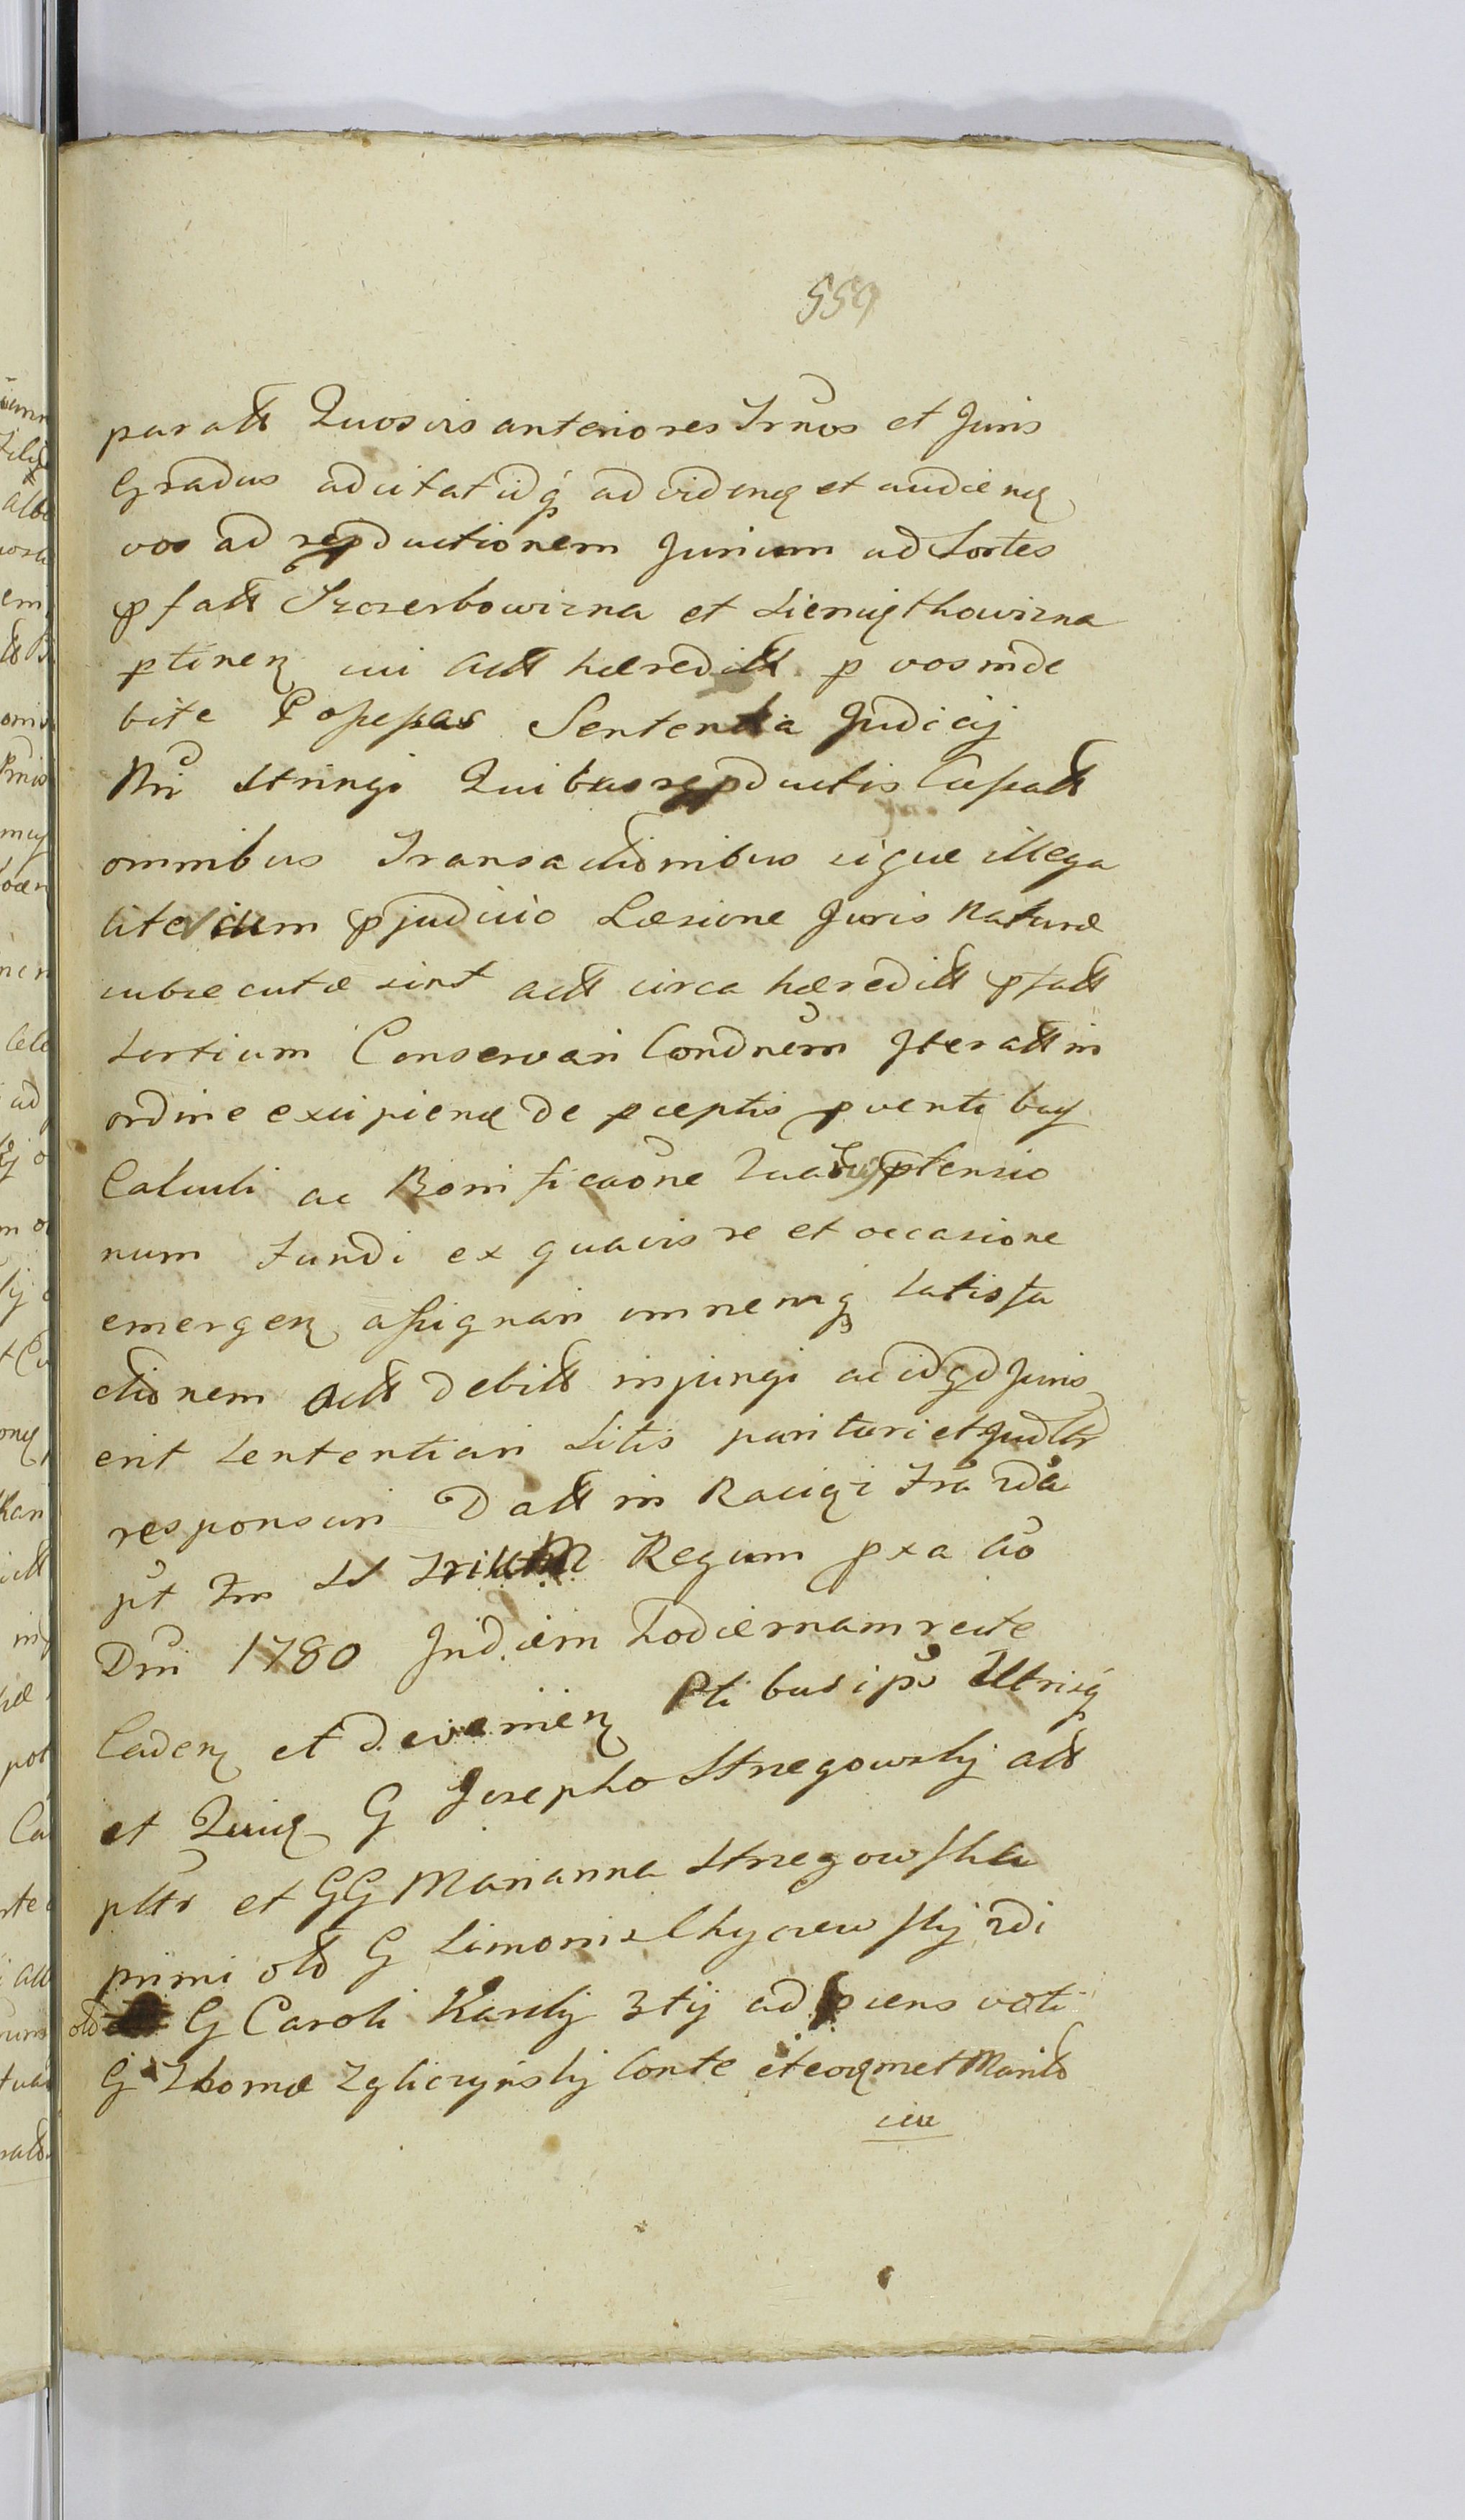 559
paratt Quosvis anteriores Trnos et Juris
Gradus adcitatidq ad videnq et audienq
vos ad repductionem Jurium ad Sortes
pfatt Szczerbowizna et Siemiąthowizna
ptinen cui Actt hæreditt p vos inde
bite Possessas Sententia Judicij
Nri Stringi Quibus repductis Cassatt
omnibus Transactionibus siquæ illega
liter cum pjudicio Læsione Juris Naturæ
subsecutæ sint actt circa hæreditt pfatt
Sortium Conservari Condnem Iteratt in
ordine excipienq de pceptis pventibus
Calculi ac Bonificaone ptensio
num Fundi ex quavis re et occasione
emergen assignari omnemq Satisfa
ctionem Actt debitt injungi ac idqd Juris
erit Sententiari Litis parituri et Judltr
responsuri Datt in Raciąż Fra 2da
pt Fm SS Trium Regum pxa Ao
Dni 1780 In diem hodiernam recte
Caden et devenien Ptibus ipis Utrisq
et G Josepho Strzegowskij actt
pltr et GG Marianna Strzegowska
primi olo G Simonis Chyczewskij 2di
olo G Caroli Karskij 3tij ad psens voti
G Thomæ Zgliczyńskij Conte et eoqmet Marito